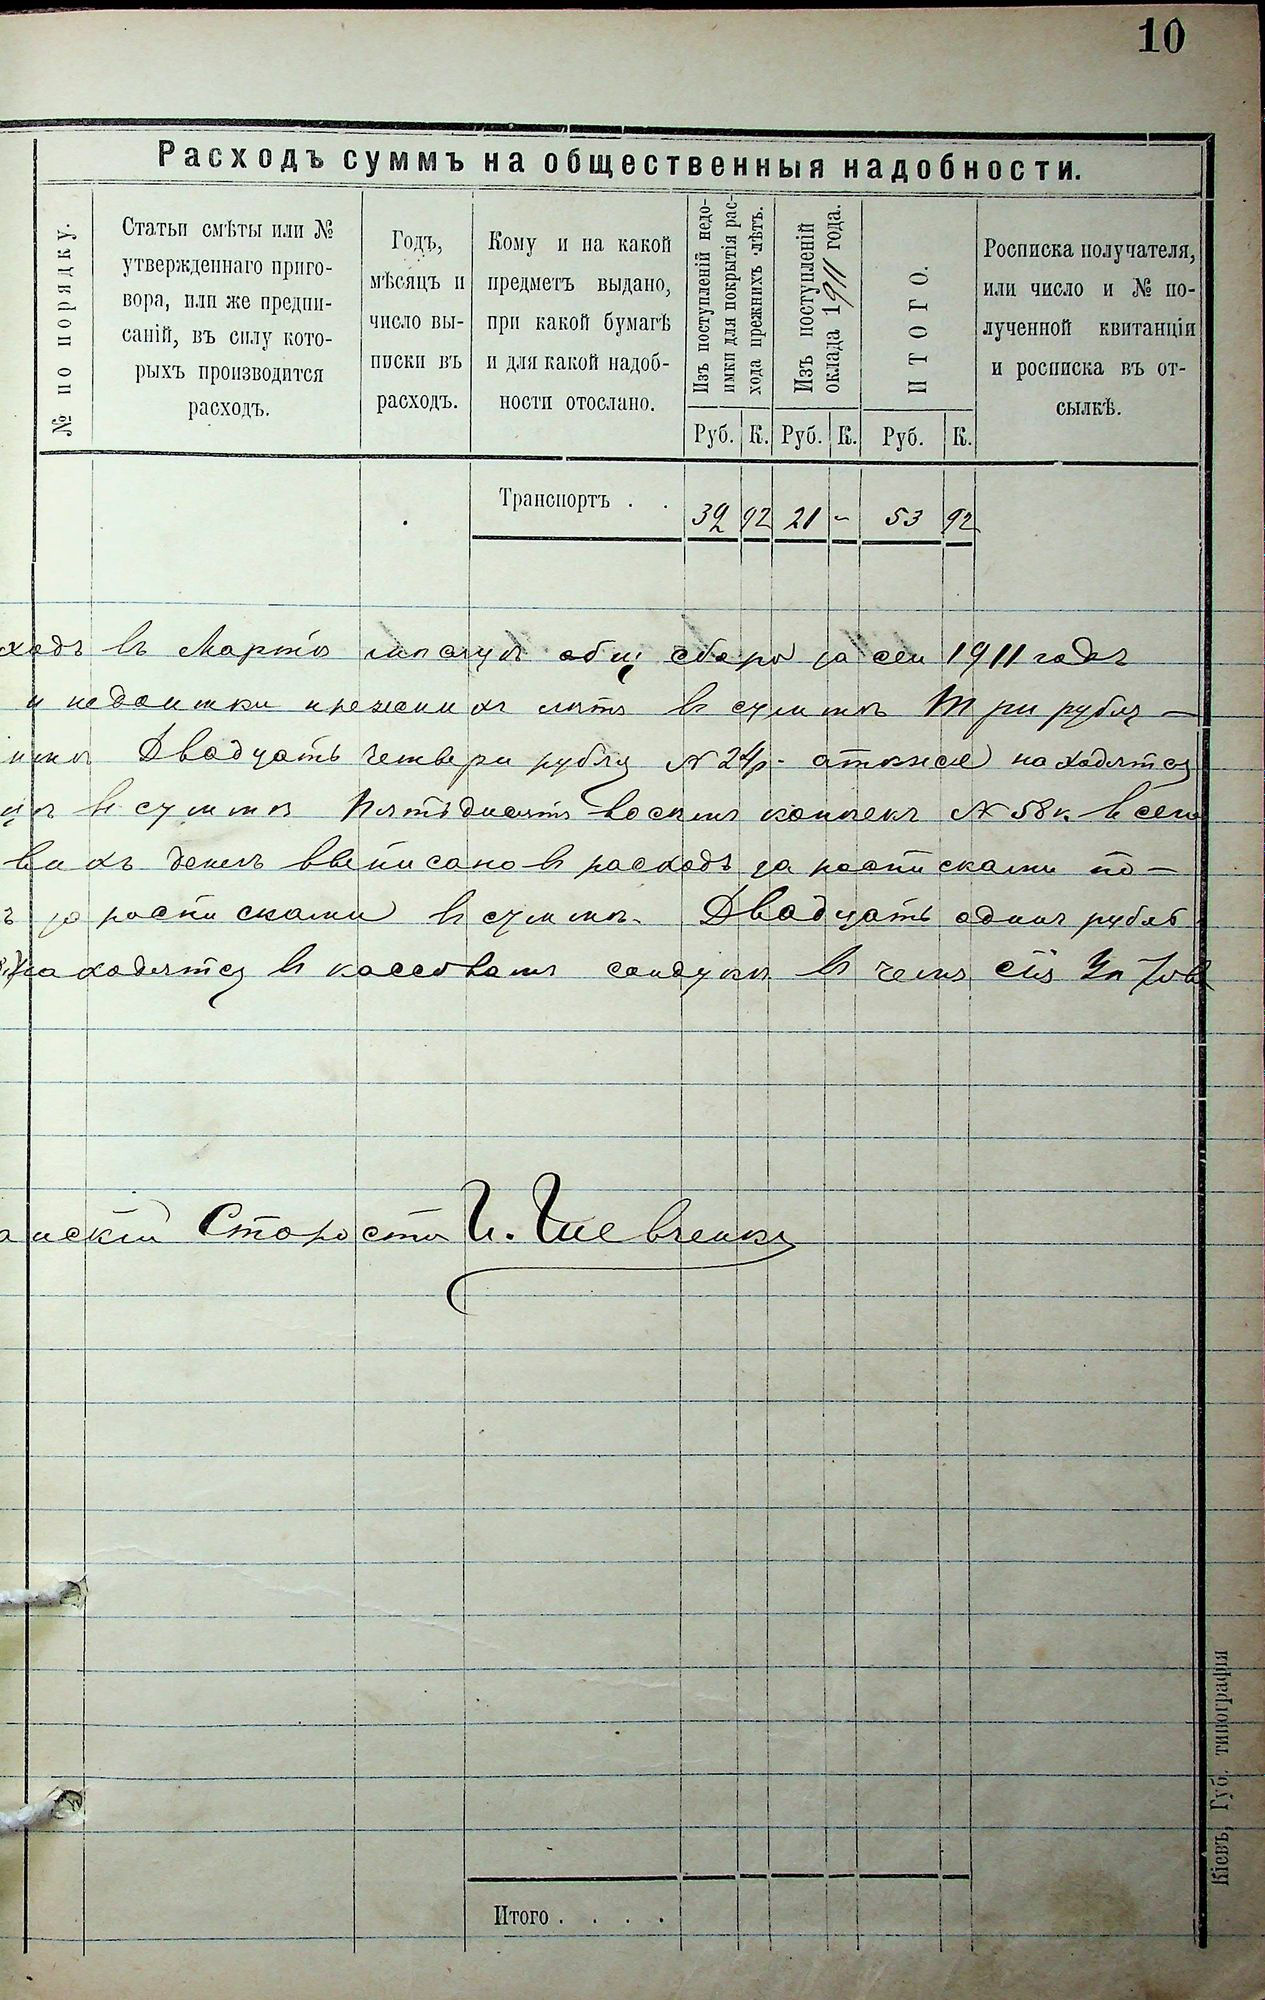 10
Расходъ суммъ на общественныя надобности.
№ по порядку.
Статьи смѣты или №
утвержденнаго приго-
вора, или же предпи-
саній, въ силу кото-
рыхъ производится
расходъ.
Годъ,
мѣсяцъ и
число вы-
писки въ
расходъ.
Кому и на какой
предметъ выдано,
при какой бумагѣ
и для какой надоб-
ности отослано.
Изъ поступленій недо-
имки для покрытія рас-
хода прежнихъ лѣтъ.
Изъ поступленій
оклада 1911 года.
ИТОГО.
Росписка получателя,
или число и № по-
лученной квитанціи
и росписка въ от-
сылкѣ.
Руб. К. Руб. К. Руб. К.
Транспортъ . . 32 92 21 - 53 92
ходъ въ Мартѣ мѣсяцѣ общ сбора за сей 1911 годъ
и недоимки прежнихъ лѣтъ въ суммѣ Три рубля —
Двадцать четвери рубля № 24р. аткже находятся
въ суммѣ Пятьдисятъ восемь копѣекъ № 58 к всего
денегъ выписано в расходъ за росписками по-
за росписками в суммѣ Двадцать адинъ рубль
находятся в кассовамъ сандукѣ в чемъ
Староста И. Шевченко
Итого . . . .
Кіевъ, Губ. типографія